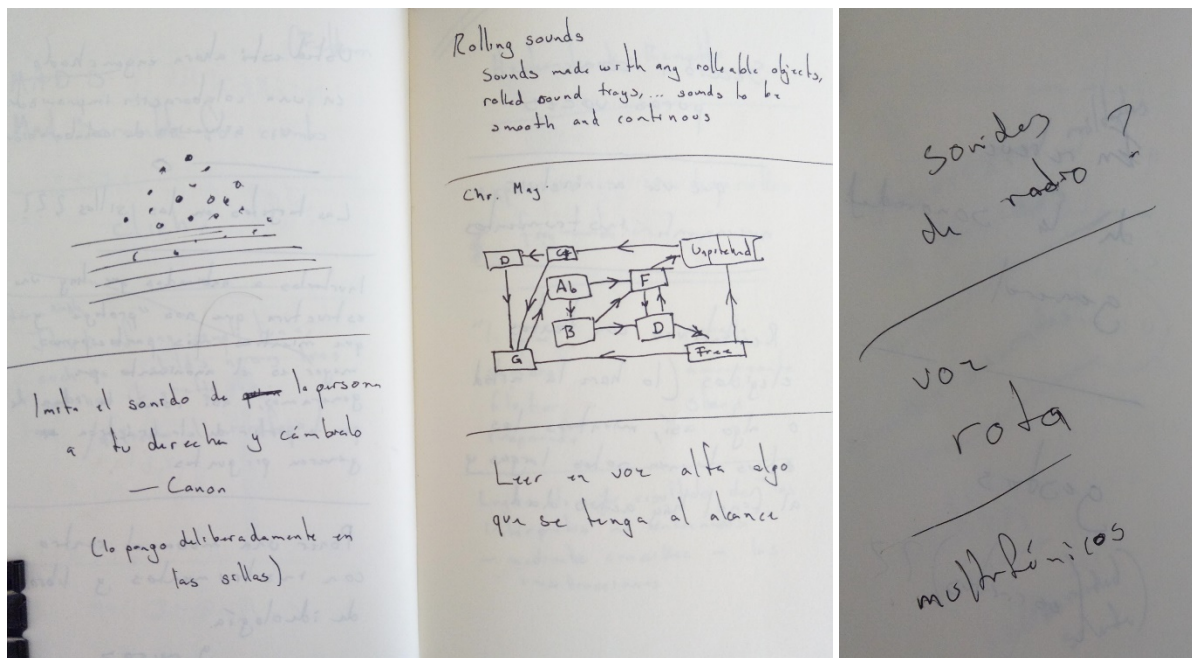 Imita el sonido de la persona
a tu derecha y cámbialo
— Canon
(lo pongo deliberadamente en
las sillas)
Rolling sounds
Sounds made with any rolleable objects,
rolled round trays, ... sounds to be
smooth and continous
Chr. Mag.
D
G
Unpitched
Ab
F
B
D
G
Free
Leer en voz alta algo
que se tenga al alcance
sonidos
de radio?
voz
rota
multifónicos